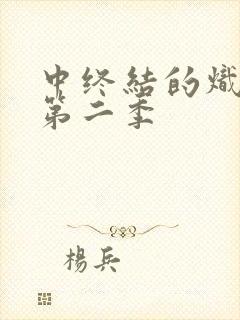 中终結的熾
第二季
楊兵